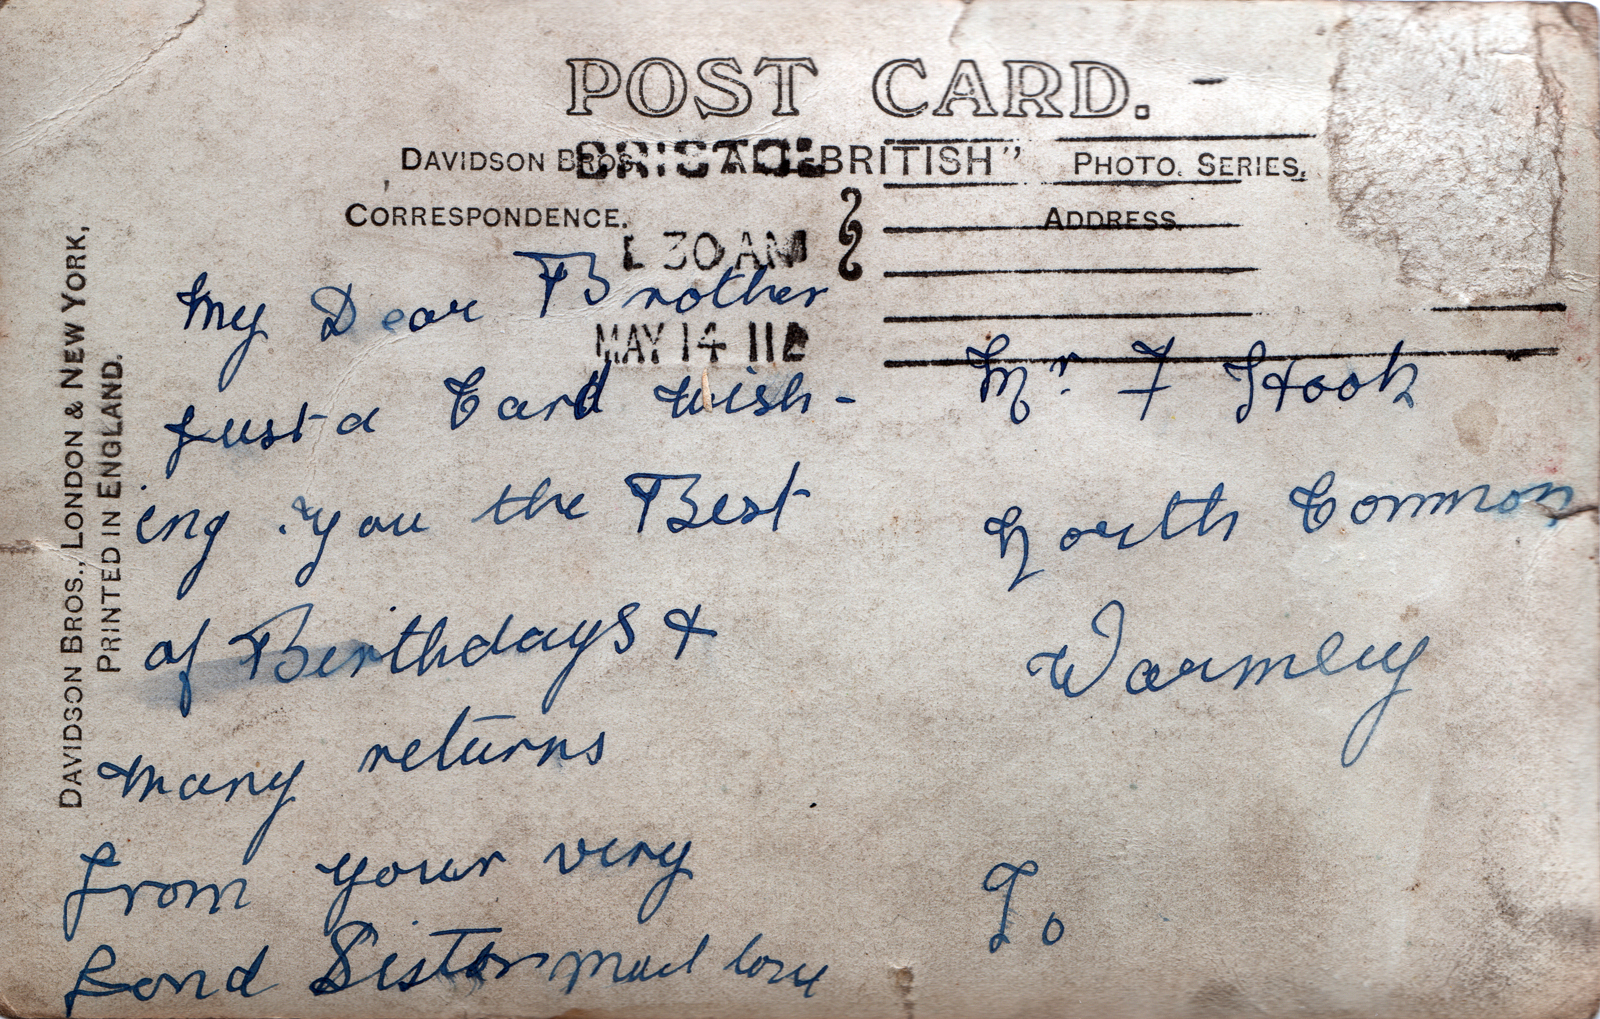 POST CARD.
DAVIDSON BROS. "ALL-BRITISH" PHOTO. SERIES.
CORRESPONDENCE. ADDRESS.
BRISTOL
30 AM
MAY 14 11
My Dear Brother
Just a Card wish-
ing you the Best
of Birthdays &
many returns
from your very
fond Sister love
Mr. F Hook
North Common
Warmley
To
DAVIDSON BROS., LONDON & NEW YORK,
PRINTED IN ENGLAND.